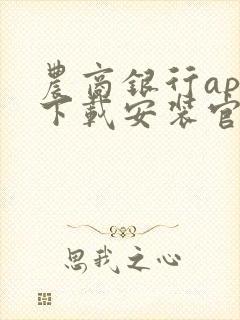 農商銀行ap
下載安裝官
思我之心